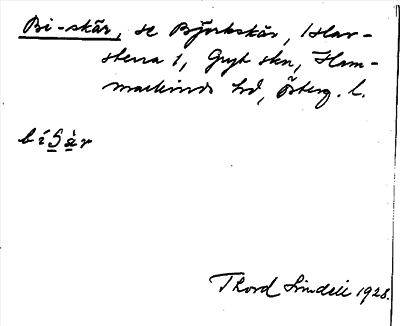 Bi-skär, se Björkskär, Hav-
stena 1, Gryt skn, Ham-
markinds hd, Österg. l.
bíSàr
Thord Lindell 1928.